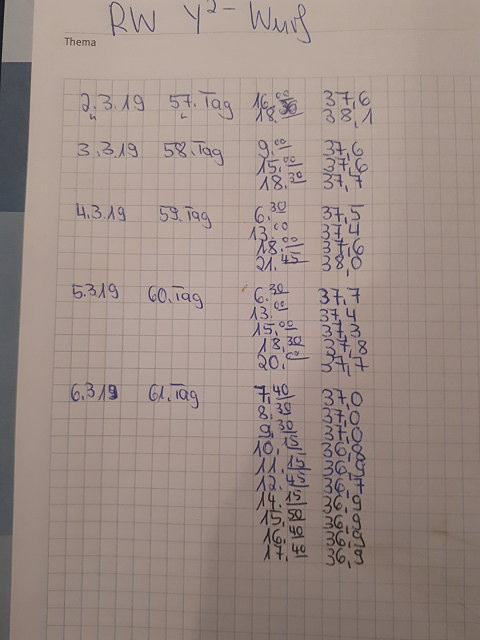 RW Y²-Wurf
Thema
2.3.19 57.Tag 16.00 37,6
18.30 38,1
3.3.19 58.Tag 9.00 37,6
15.00 37,6
18.30 37,7
4.3.19 59.Tag 6.30 37,5
13.00 37,4
18.00 37,6
21.45 38,0
5.3.19 60.Tag 6.30 37,7
13.00 37,4
15.00 37,3
18.30 37,8
20.00 37,7
6.3.19 61.Tag 7.40 37,0
8.30 37,0
9.30 37,0
10.15 36,8
11.15 36,9
12.45 36,7
14.15 36,9
15.50 36,9
16.40 36,9
17.40 36,9